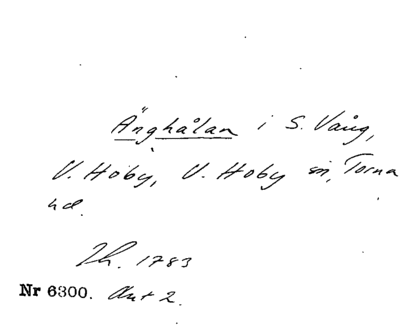 Änghålan i S. Vång,
V. Hoby, V. Hoby sn, Torna
hd.
Th. 1783
Nr 6300. Akt 2.